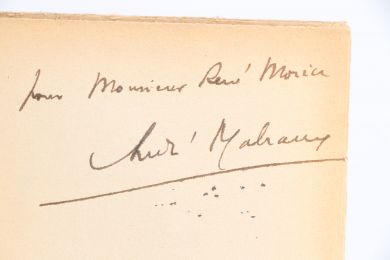 pour Monsieur René Morin
André Malraux